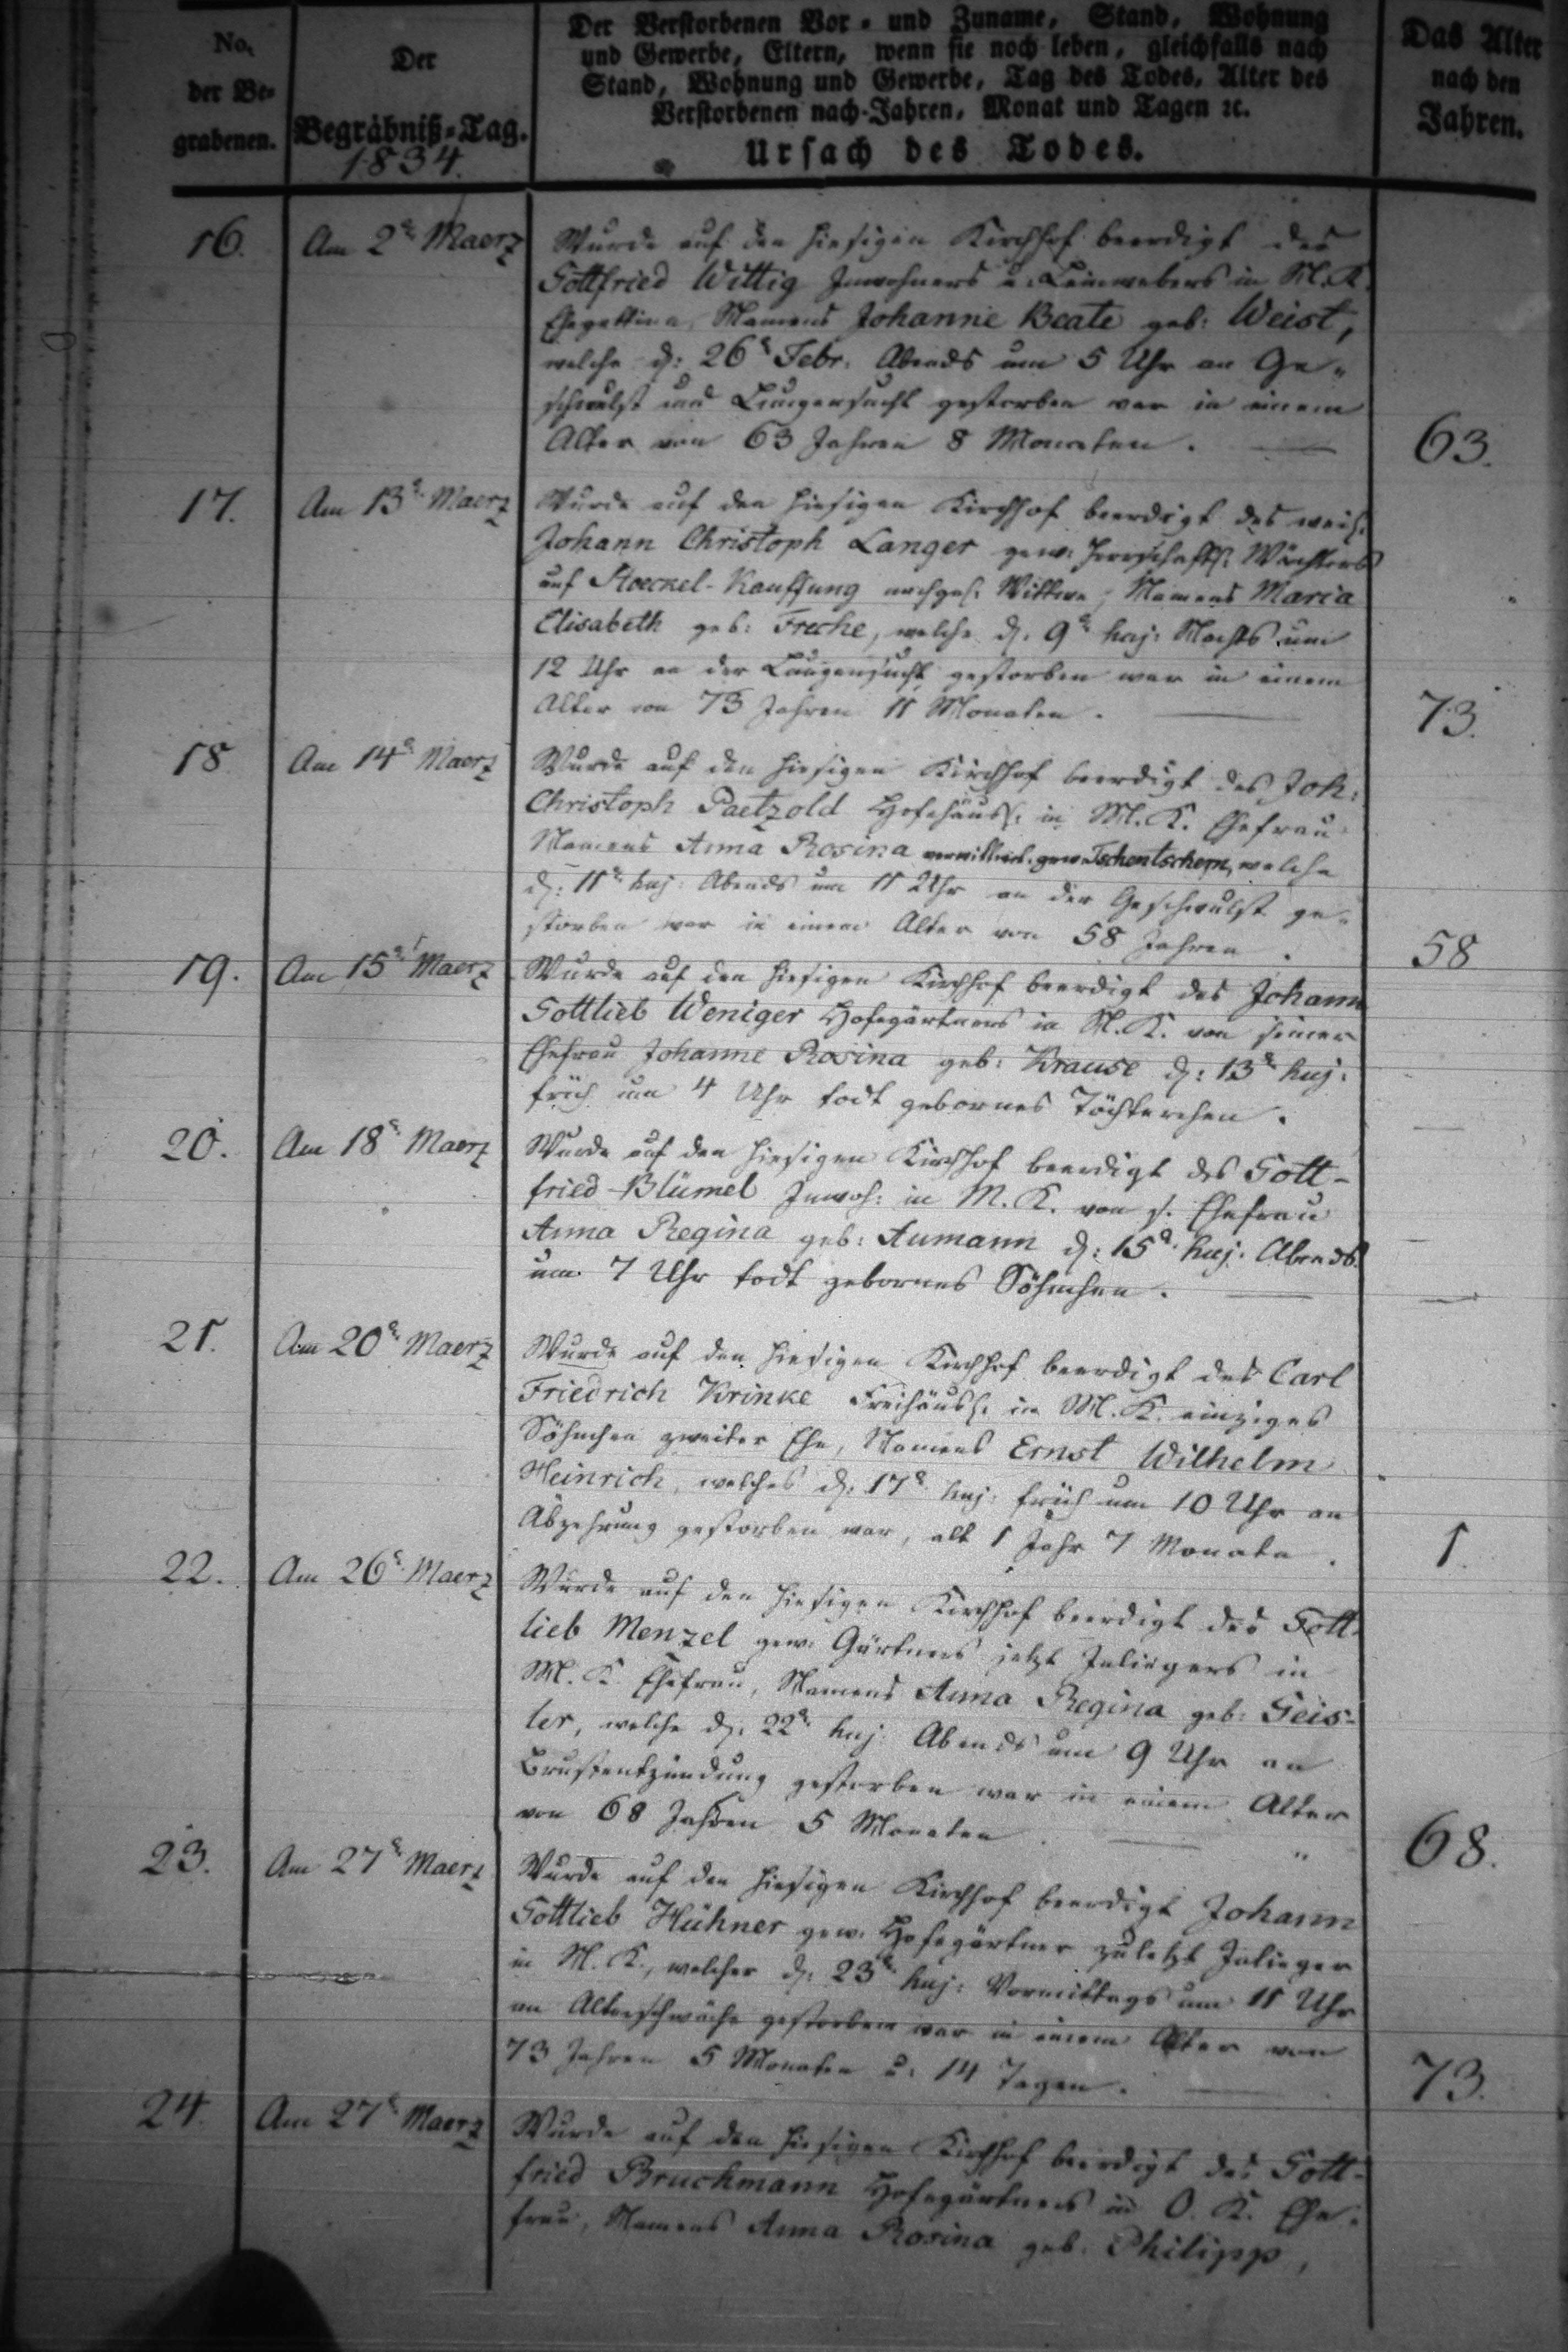 No.
der Be-
grabenen.
Der
Begräbniß-Tag.
1834.
Der Verstorbenen Vor- und Zuname, Stand, Wohnung
und Gewerbe, Eltern, wenn sie noch leben, gleichfalls nach
Stand, Wohnung und Gewerbe, Tag des Todes, Alter des
Verstorbenen nach Jahren, Monat und Tagen ꝛc.
Ursach des Todes.
Das Alter
nach den
Jahren.
16. Am 2t. Maerz Wurde auf den hiesigen Kirchhof beerdigt des
Gottfried Wittig Inwohners u. Leinwebers in M. K.
Ehegattinn, Namens Johanne Beate geb: Weist,
welche d: 26t Febr. Abends um 5 Uhr an Ge-
schwulst und Lungensucht gestorben war in einem
Alter von 63 Jahren 8 Monaten. 63.
17. Am 13t. Maerz Wurde auf den hiesigen Kirchhof beerdigt des weil.
Johann Christoph Langer gew: herrschaftl. Wächters
auf Stoeckel-Kauffung nachgel. Wittwe, Namens Maria
Elisabeth geb: Freche, welche d. 9t huj: Nachts um
12 Uhr an der Lungensucht gestorben war in einem
Alter von 73 Jahren 11 Monaten. 73.
18 Am 14t. Maerz Wurde auf den hiesigen Kirchhof beerdigt des Joh:
Christoph Paetzold Hofehäusl. in M. K. Ehefrau
Namens Anna Rosina verwittwet. gew. Tschentschern, welche
d: 11t huj: Abends um 11 Uhr an der Geschwulst ge-
storben war in einem Alter von 58 Jahren. 58
19. Am 15t. Maerz Wurde auf den hiesigen Kirchhof beerdigt des Johann
Gottlieb Weniger Hofegärtners in M. K. von seiner
Ehefrau Johanne Rosina geb: Krause d: 13t huj:
früh um 4 Uhr todt gebornes Töchterchen.
20. Am 18t. Maerz Wurde auf den hiesigen Kirchhof beerdigt des Gott-
fried Blümel Inwoh: in M. K. von s. Ehefrau
Anna Regina geb: Aumann d: 15t. huj. Abends
um 7 Uhr todt gebornes Söhnchen.
21. Am 20t. Maerz Wurde auf den hiesigen Kirchhof beerdigt des Carl
Friedrich Krinke Freihäusl. in M. K. einziges
Söhnchen zweiter Ehe, Namens Ernst Wilhelm
Heinrich, welches d: 17t huj: früh um 10 Uhr an
Abzehrung gestorben war, alt 1 Jahr 7 Monate. 1.
22. Am 26t. Maerz Wurde auf den hiesigen Kirchhof beerdigt des Gott-
lieb Menzel gew: Gärtners jetzt Inliegers in
M. K. Ehefrau, Namens Anna Regina geb: Geis-
ler, welche d: 22t. huj. Abends um 9 Uhr an
Brustentzündung gestorben war in einem Alter
von 68 Jahren 5 Monaten. 68.
23. Am 27t Maerz Wurde auf den hiesigen Kirchhof beerdigt Johann
Gottlieb Hühner gew. Hofegärtner zuletzt Inlieger
in M. K., welcher d: 23t huj: Vormittags um 11 Uhr
an Altersschwäche gestorben war in einem Alter von
73 Jahren 5 Monaten u: 14 Tagen. 73.
24. Am 27t Maerz Wurde auf den hiesigen Kirchhof beerdigt des Gott-
fried Bruchmann Hofegärtners in O. K. Ehe-
frau, Namens Anna Rosina geb. Philipp,